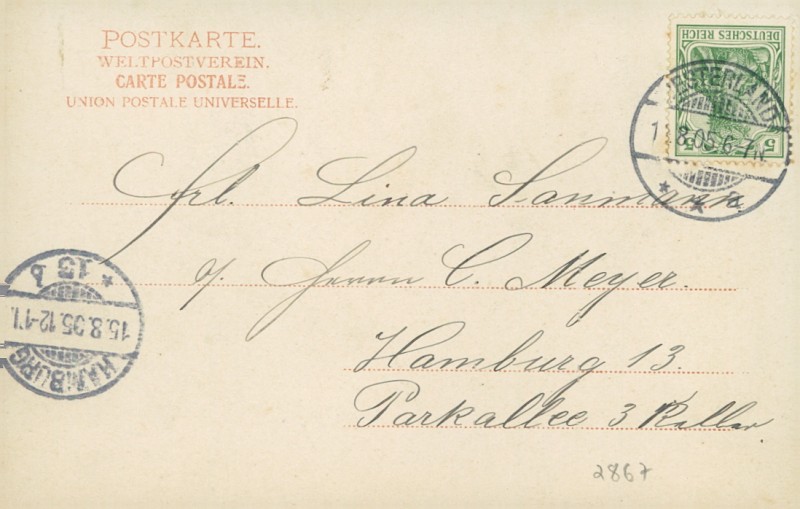 POSTKARTE.
WELTPOSTVEREIN.
CARTE POSTALE.
UNION POSTALE UNIVERSELLE.
DEUTSCHES REICH
5 5
WESTERLAND
8.05.6-7N.
* * a
Frl. Lina Sanmann
p. Herrn C. Meyer.
Hamburg 13.
Parkallee 3 Keller
* 15 b
15.8.05.12-1N.
HAMBURG
2867